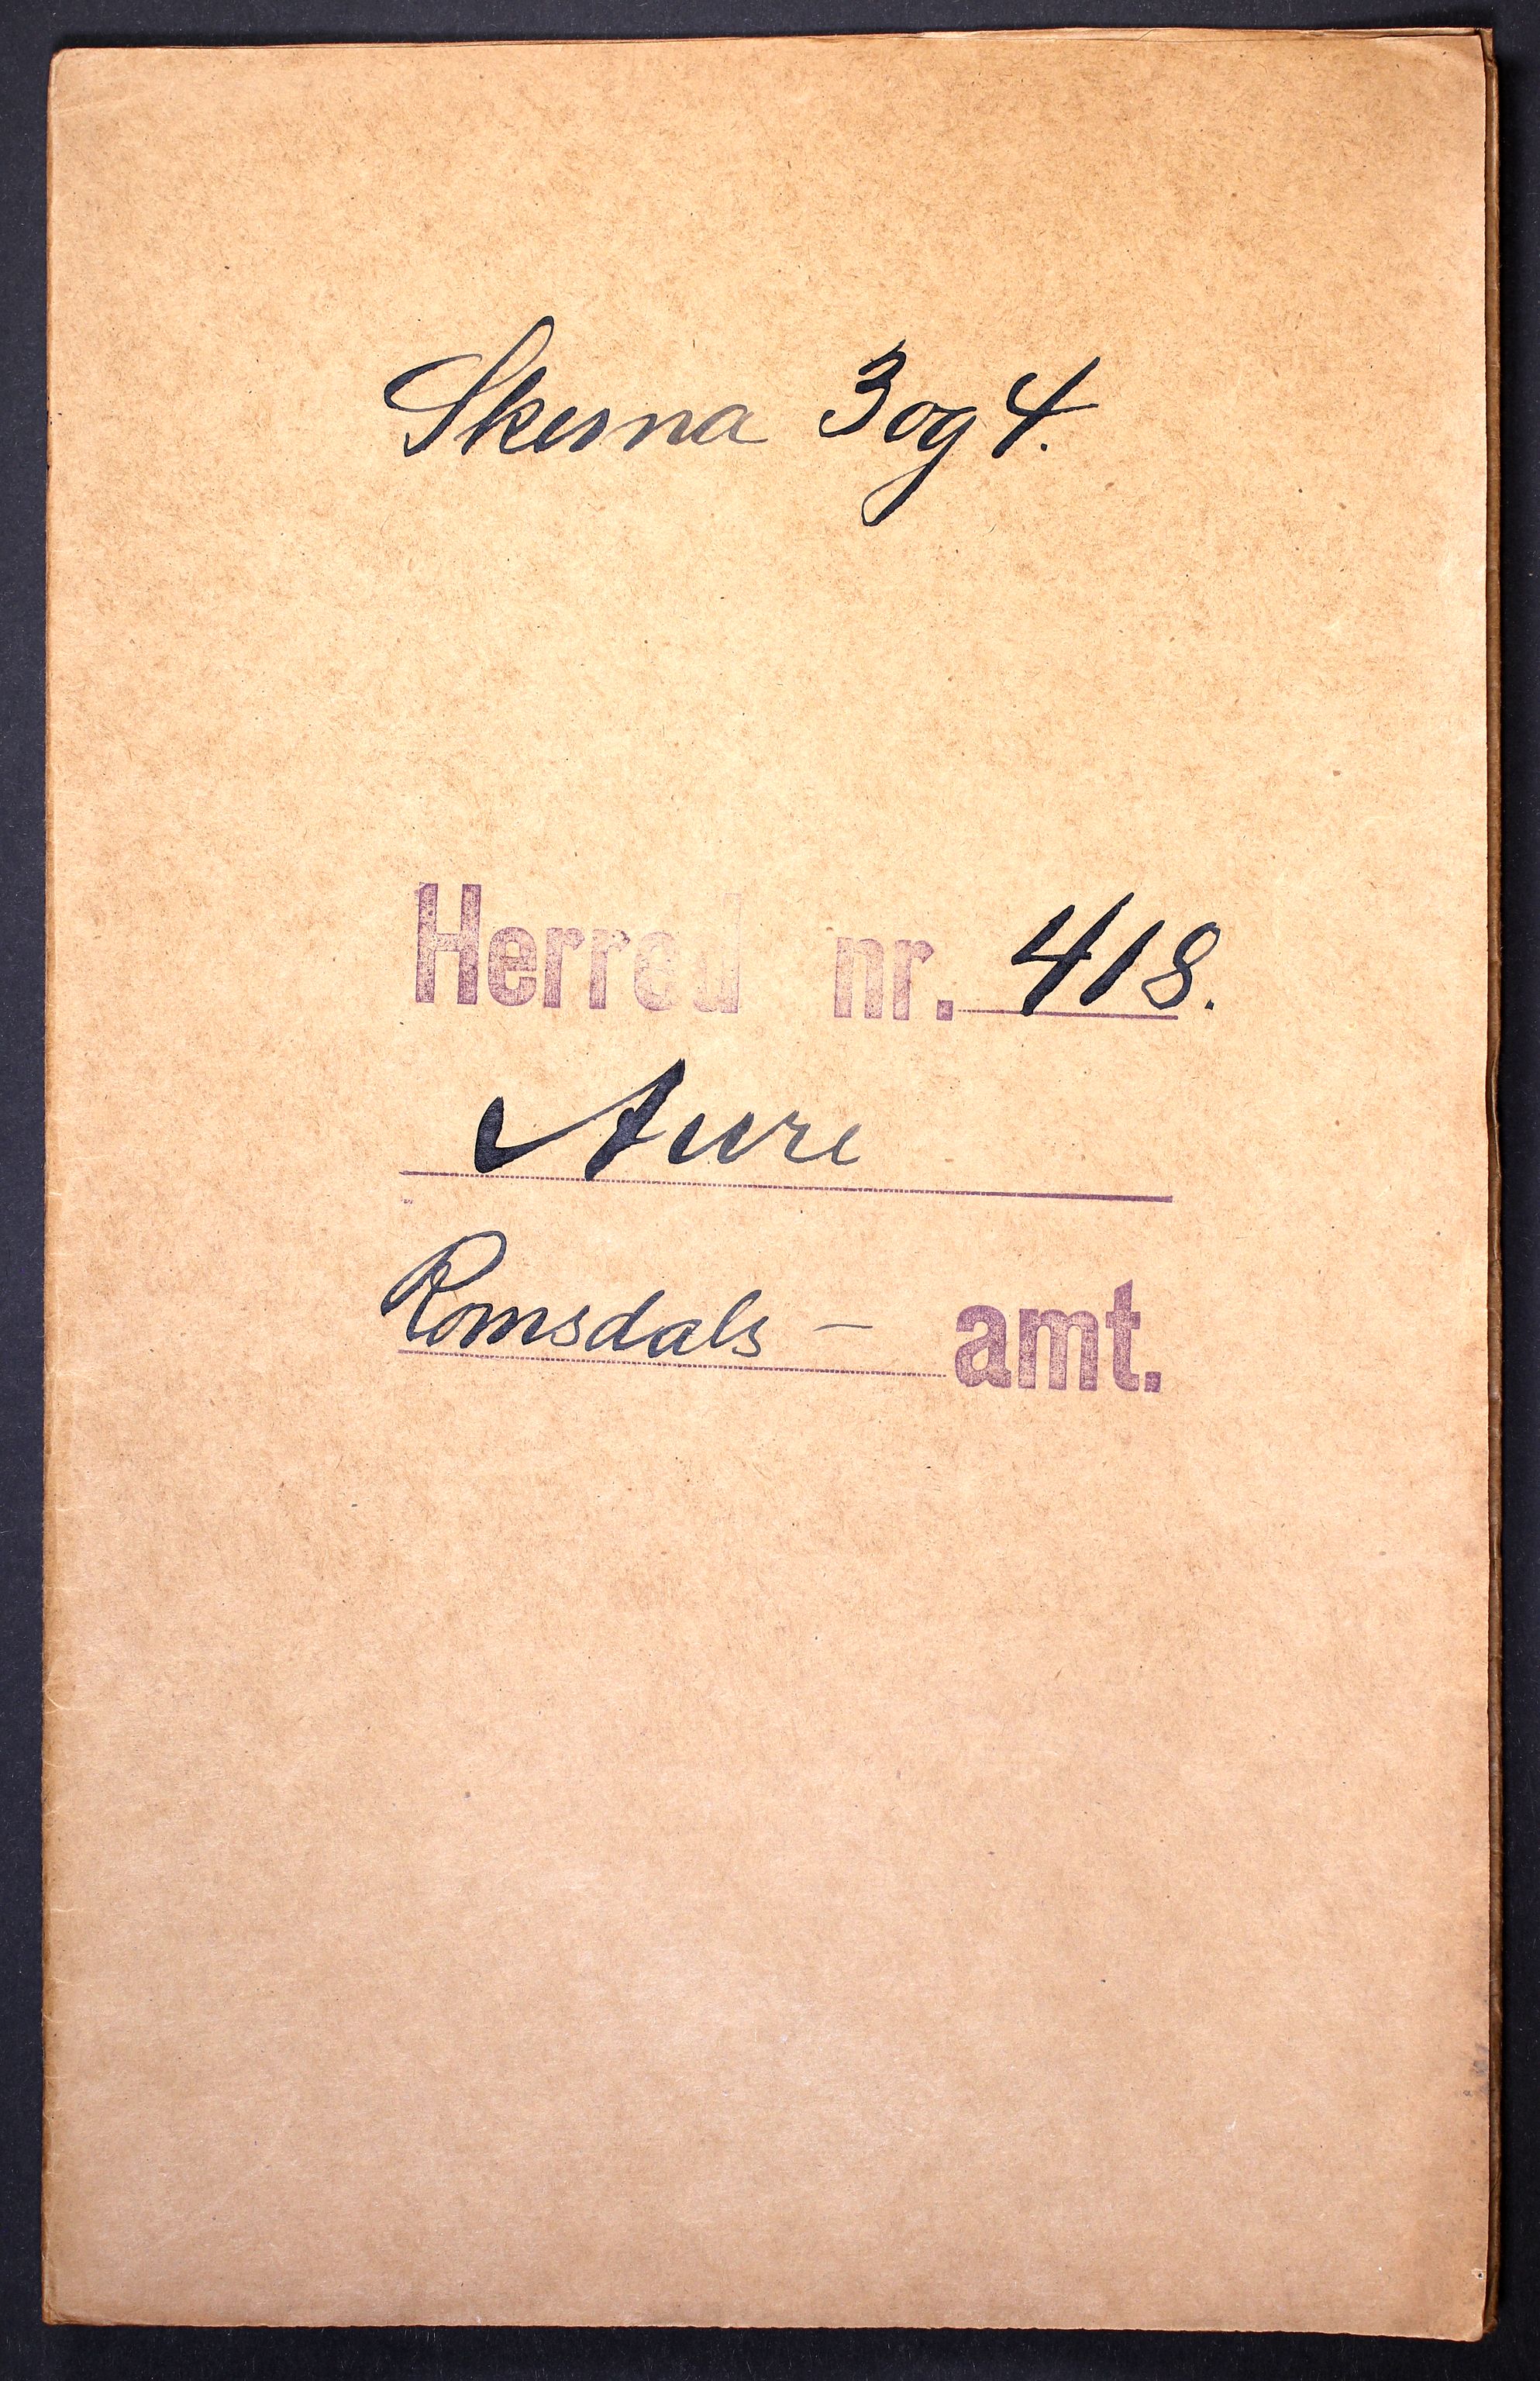 Skema 3 og 4.
Herred nr. 418.
Aure
Romsdals - amt.